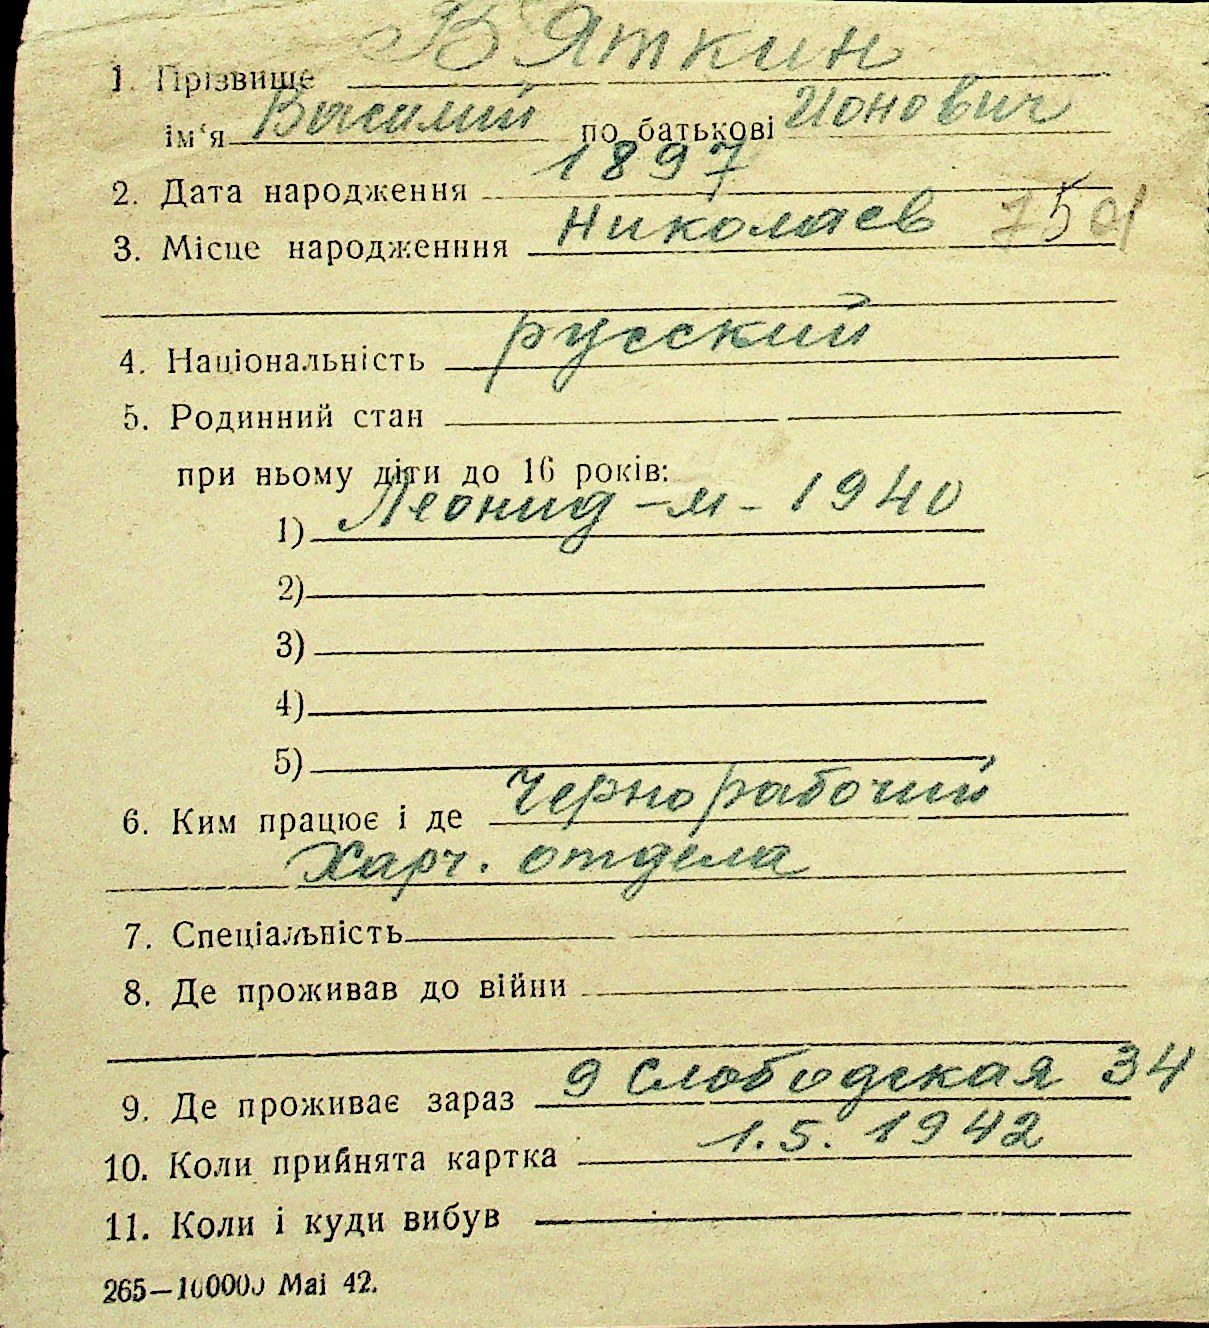 1. Прізвище В'Яткин
ім'я Василий по батькові Ионович
2. Дата народження 1897
3. Місце народженння Николаев 75а
4. Національність русский
5. Родинний стан
при ньому діти до 16 років:
1) Леонид - м - 1940
2)
3)
4)
5)
6. Ким працює і де Чернорабочий
Харч. отдела
7. Спеціальність
8. Де проживав до війни
9. Де проживає зараз 9 Слободская 34
10. Коли прийнята картка 1.5.1942
11. Коли і куди вибув
265—100000 Mai 42.